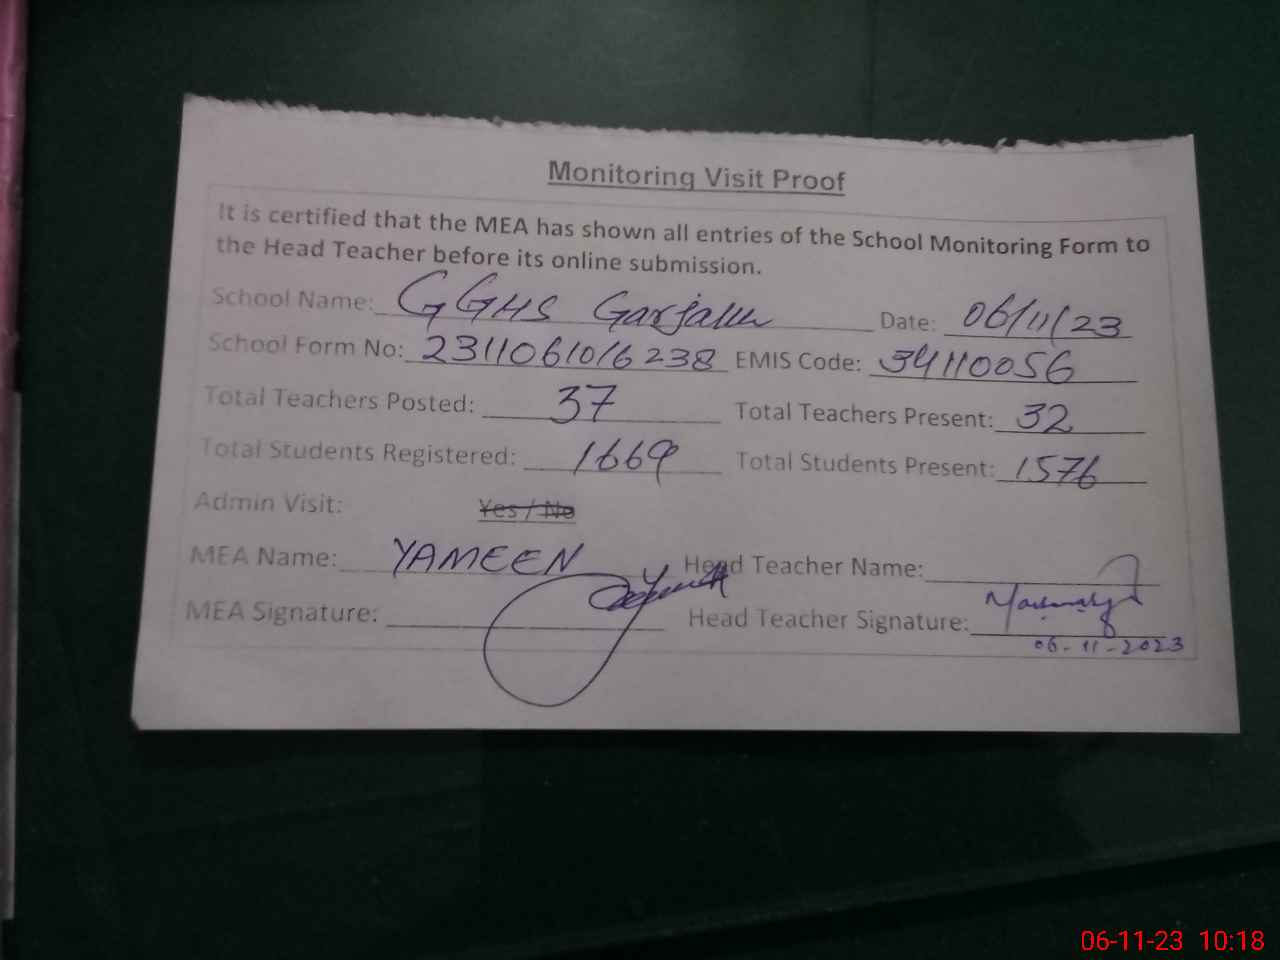 Monitoring Visit Proof
It is certified that the MEA has shown all entries of the School Monitoring Form to
the Head Teacher before its online submission.
School Name: GGHS Date: 06/11/23
School Form No: 2311061016238 EMIS Code: 34110056
Total Teachers Posted: 37 Total Teachers Present: 32
Total Students Registered: 1669 Total Students Present: 1576
Admin Visit: Yes / No
MEA Name: YAMEEN Head Teacher Name:
MEA Signature: Head Teacher Signature:
06-11-2023
06-11-23 10:18